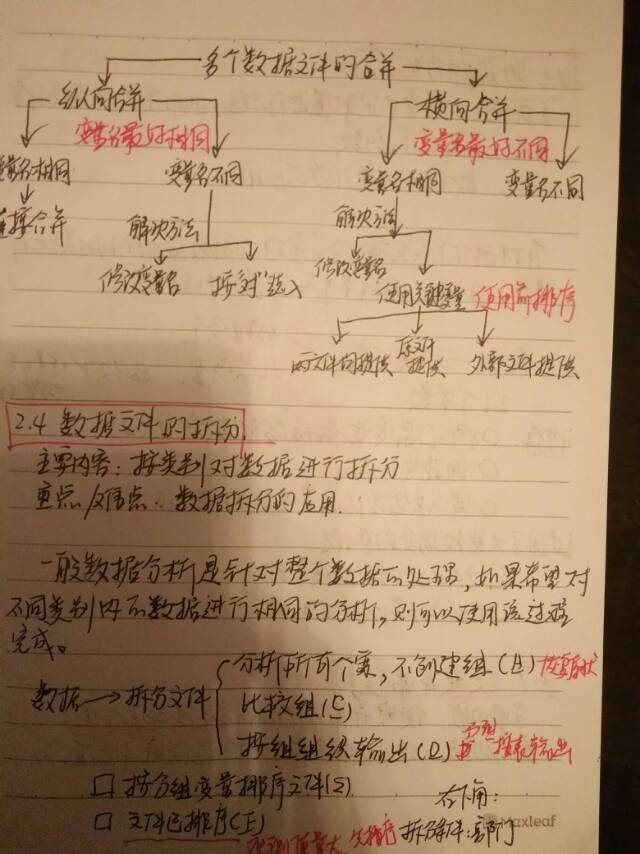 多个数据文件的合并
纵向合并 横向合并
变量名最好相同 变量名最好不同
变量名相同 变量名不同 变量名相同 变量名不同
连接合并 解决方法 解决方法
修改变量名 按"对"选入 修改变量名 使用关键变量 使用前排序
两文件同提供 原文件提供 外部文件提供
2.4 数据文件的拆分
主要内容：按类别对数据进行拆分
重点/难点：数据拆分的应用.
一般数据分析是针对整个数据的处理，如果希望对
不同类别内的数据进行相同的分析，则可以使用该过程
完成。
数据→拆分文件
分析所有个案，不创建组(A) 恢复原状
比较组(C)
按组组织输出(O) 按表输出
□ 按分组变量排序文件(S)
□ 文件已排序(F)
右下角：
拆分条件：部门
先排序
Maxleaf